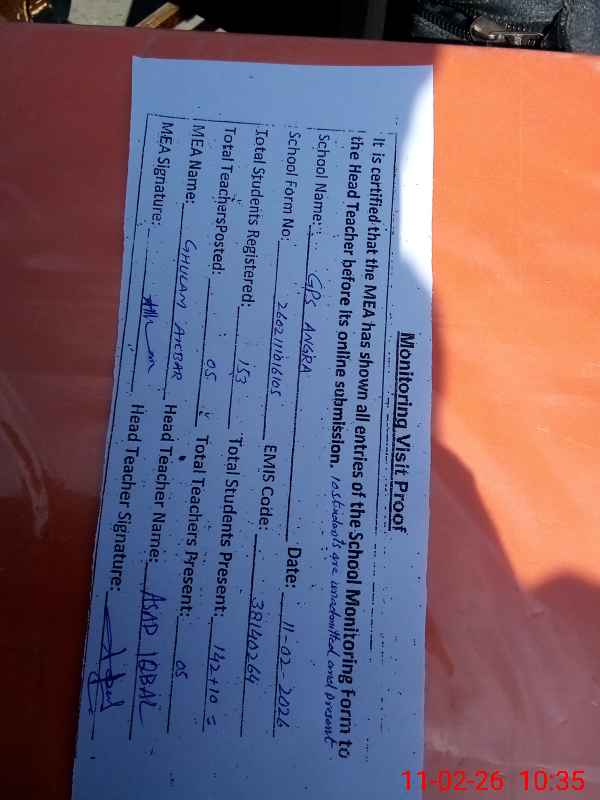 Monitoring Visit Proof
It is certified that the MEA has shown all entries of the School Monitoring Form to
the Head Teacher before its online submission. 10 students are unadmitted and present
School Name: GPS ANGRA Date: 11-02-2026
School Form No: EMIS Code: 38140264
Total Students Registered: 153 Total Students Present: 142+10 =
Total TeachersPosted: 05 Total Teachers Present: 05
MEA Name: GHULAM AKBAR Head Teacher Name: ASAD IQBAL
MEA Signature: Head Teacher Signature:
11-02-26 10:35